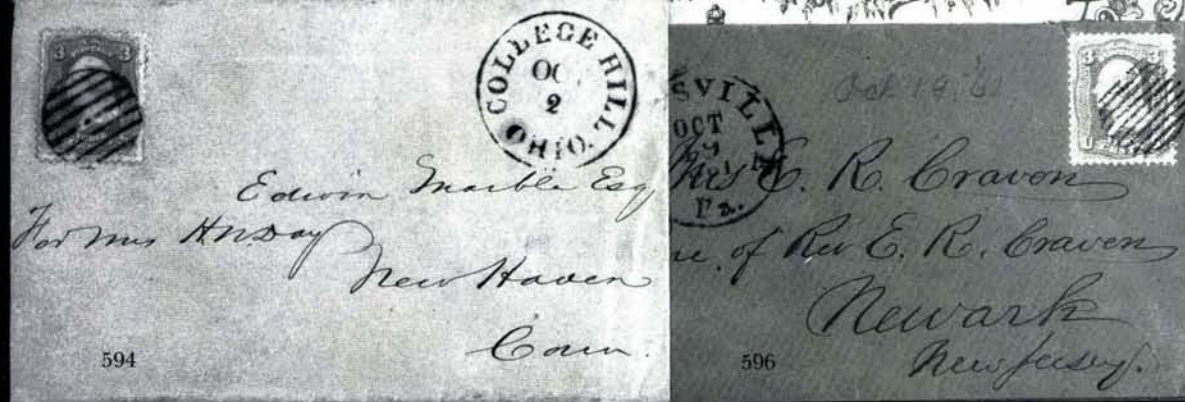 3 3
COLLEGE HILL
OC
2
OHIO.
Edwin Marble Esq
For Mrs H N Day
New Haven
Conn.
594
3 3
Oct 19, 61
SVILLE
OCT
Pa.
Mrs E. R. Craven
of Rev E. R. Craven
Newark
New Jersey.
596